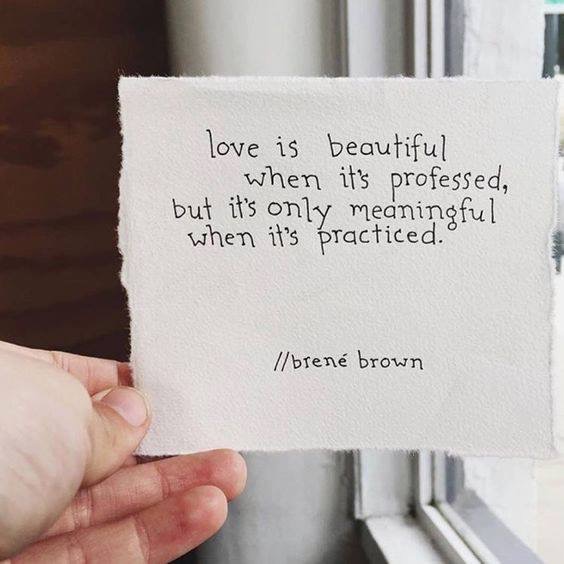 love is beautiful
when it's professed,
but it's only meaningful
when it's practiced.
//brené brown